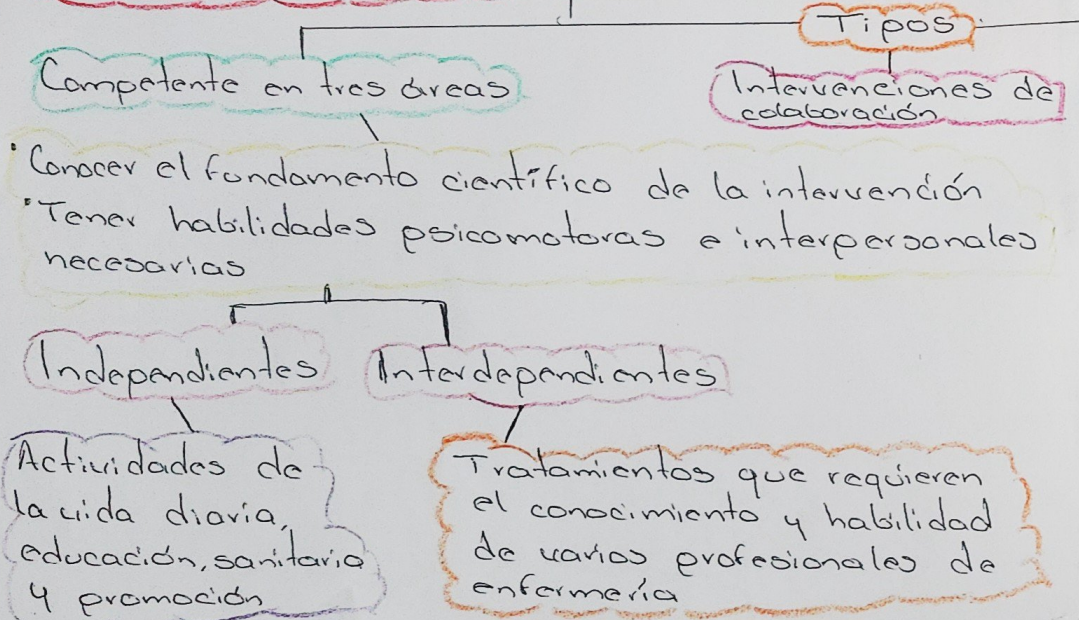 Tipos
Competente en tres áreas
Intervenciones de
colaboración
• Conocer el fundamento científico de la intervención
• Tener habilidades psicomotoras e interpersonales
necesarias
Independientes
Interdependientes
Actividades de
la vida diaria,
educación, sanitaria
y promoción
Tratamientos que requieren
el conocimiento y habilidad
de varios profesionales de
enfermería